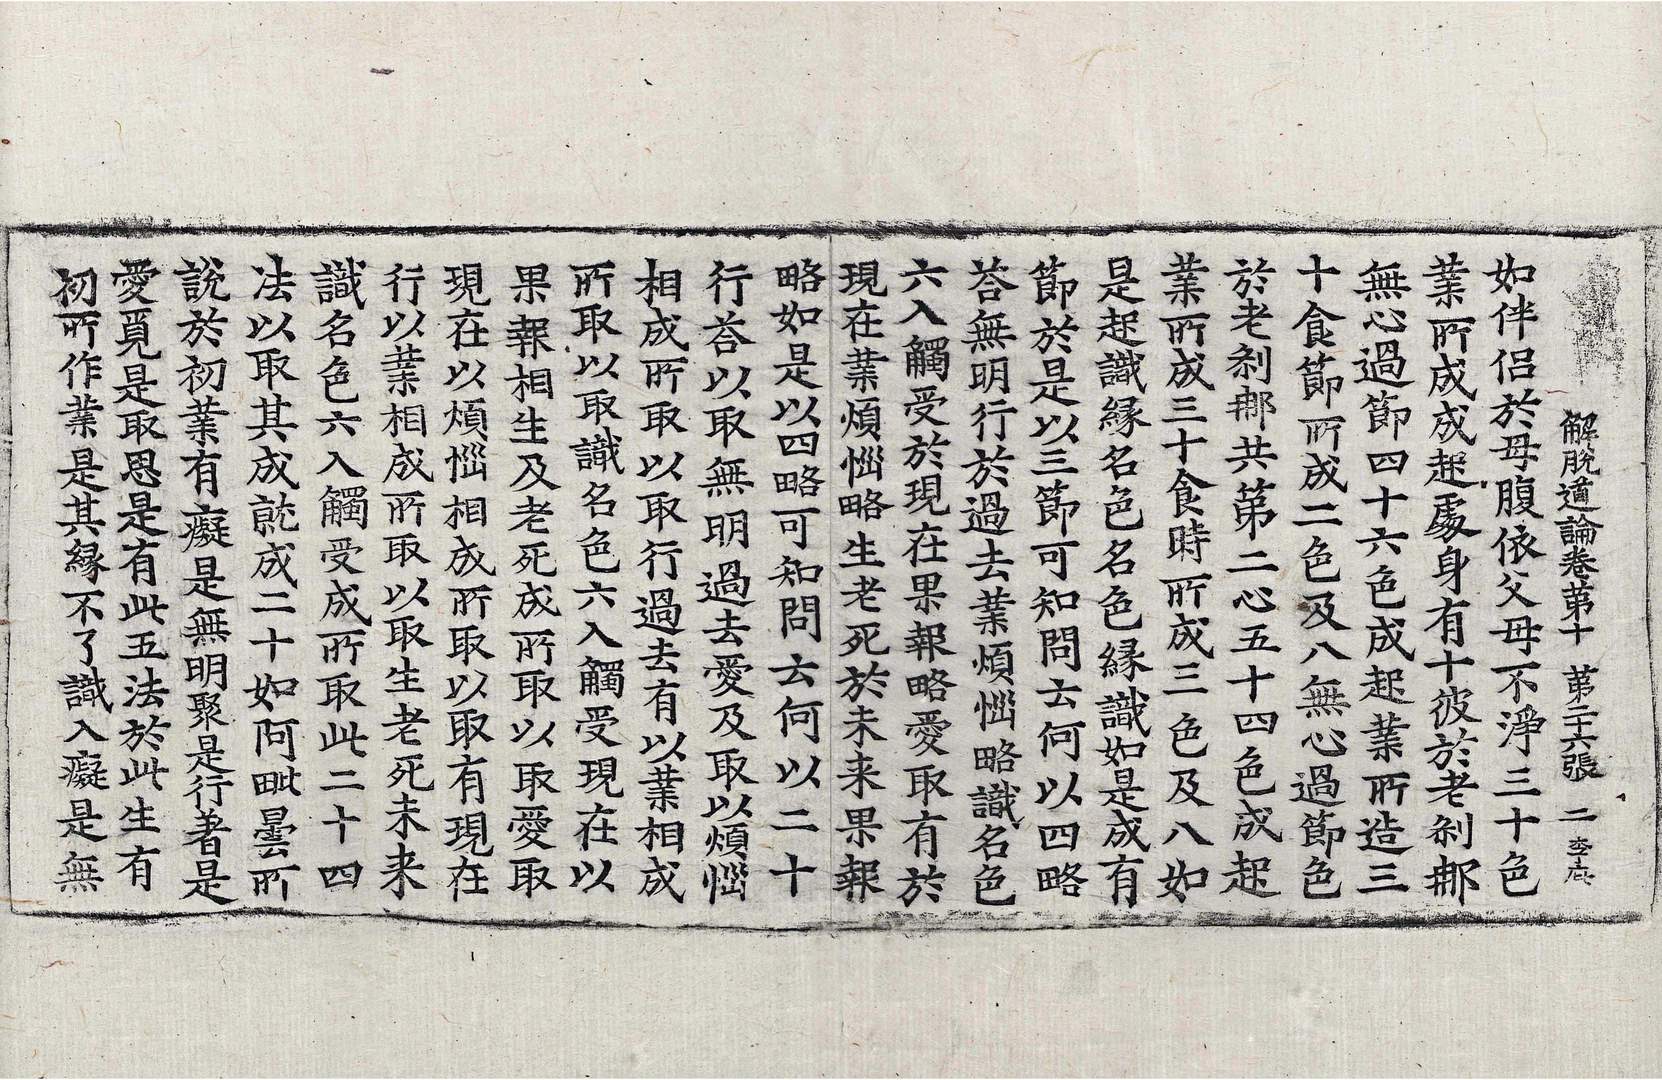 解脫道論卷第十 第二十六張 二
如伴侣於母腹依父母不淨三十色
業所成成起處身有十彼於老剎那
無心過節四十六色成起業所造三
十食節所成二色及八無心過節色
於老剎那共第二心五十四色成起
業所成三十食時所成三色及八如
是起識縁名色名色縁識如是成有
節於是以三節可知問云何以四略
荅無明行於過去業煩惱略識名色
六入觸受於現在果報略愛取有於
現在業煩惱略生老死於未来果報
略如是以四略可知問云何以二十
行荅以取無明過去愛及取以煩惱
相成所取以取行過去有以業相成
所取以取識名色六入觸受現在以
果報相生及老死成所取以取愛取
現在以煩惱相成所取以取有現在
行以業相成所取以取生老死未来
識名色六入觸受成所取此二十四
法以取其成就成二十如阿毗曇所
說於初業有癡是無明聚是行著是
愛覓是取思是有此五法於此生有
初所作業是其縁不了識入癡是無